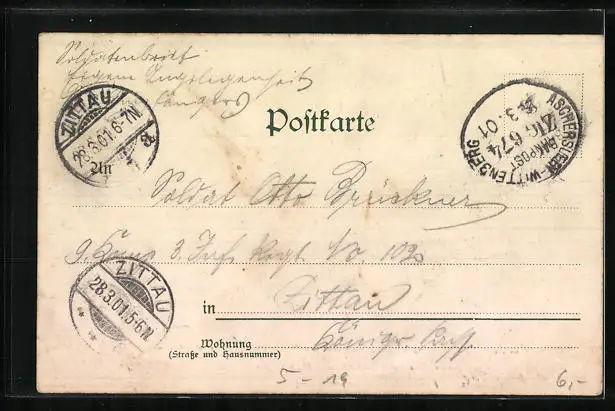 Soldatenbrief
Eigene Angelegenheit
ZITTAU
28.3.01.6-7N.
Postkarte
ASCHERSLEBEN-WITTENBERG
BAHNPOST
ZUG 674
3.01
An
Soldat Otto Brückner
3. Inf. Regt. No 102
ZITTAU
28.3.01.5-6N.
in
Zittau
Wohnung
(Straße und Hausnummer)
5-19
6,-